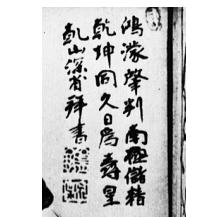 鴻濛肇判南極儲精
乾坤同久曰為壽星
乾山深省拜書